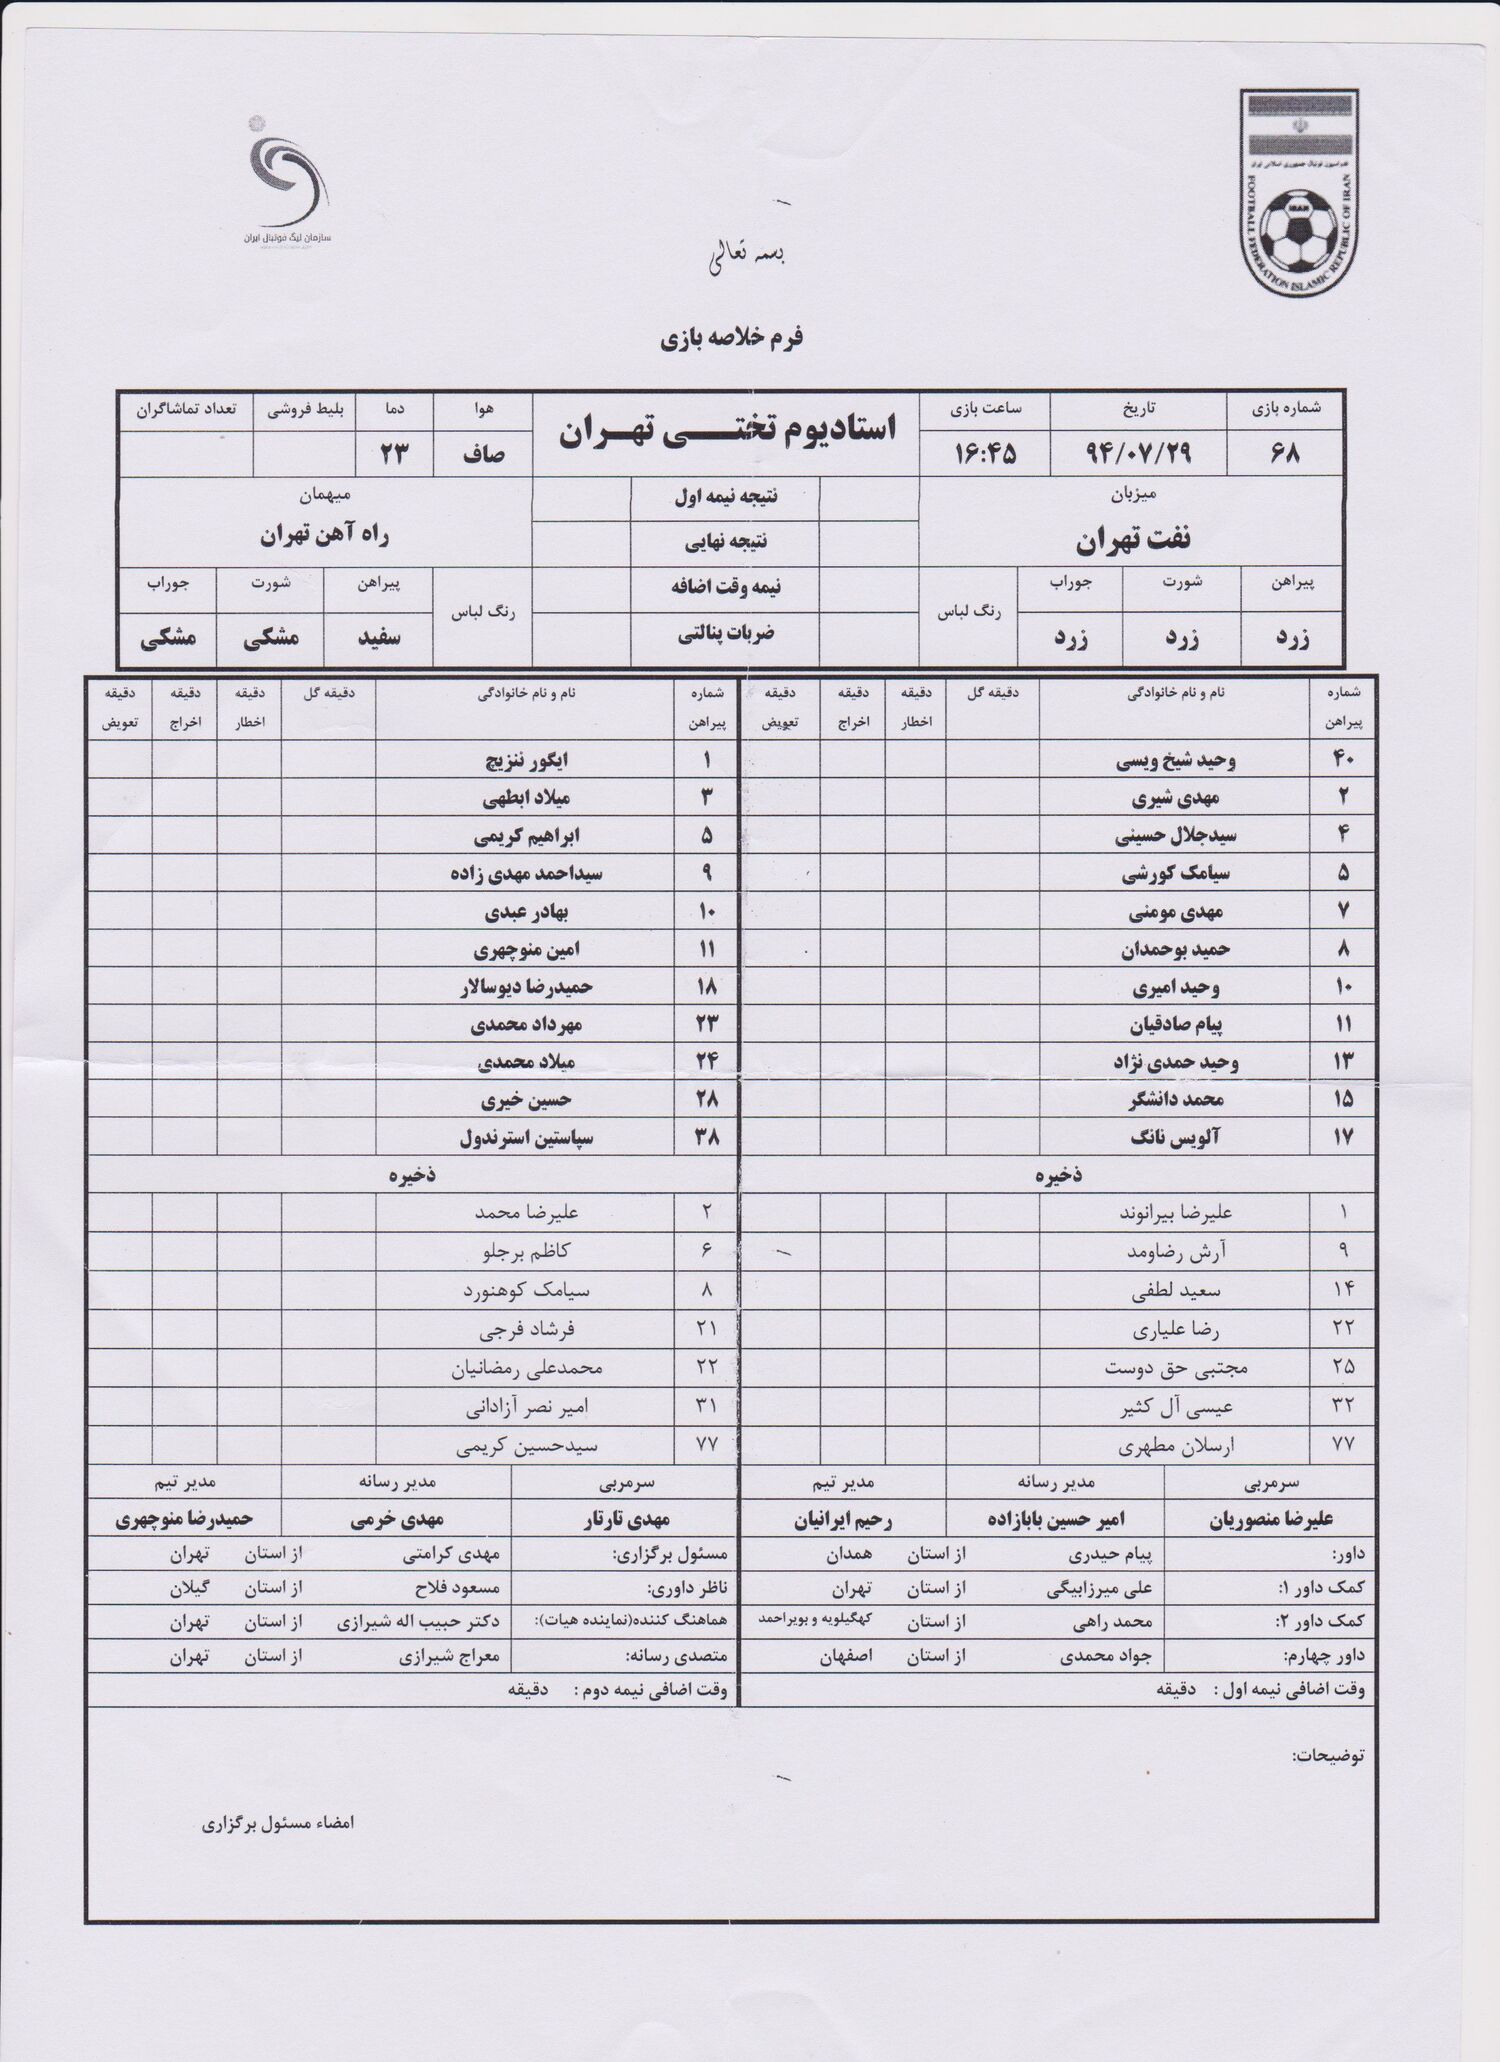 فدراسیون فوتبال جمهوری اسلامی ایران
IRAN
FOOTBALL FEDERATION ISLAMIC REPUBLIC OF IRAN
سازمان لیگ فوتبال ایران
بسمه تعالی
فرم خلاصه بازی
شماره بازی تاریخ ساعت بازی استادیوم تختی تهران هوا دما بلیط فروشی تعداد تماشاگران
۶۸ ۹۴/۰۷/۲۹ ۱۶:۴۵ صاف ۲۳
میزبان نتیجه نیمه اول میهمان
نفت تهران نتیجه نهایی راه آهن تهران
پیراهن شورت جوراب رنگ لباس نیمه وقت اضافه رنگ لباس پیراهن شورت جوراب
زرد زرد زرد ضربات پنالتی سفید مشکی مشکی
شماره پیراهن نام و نام خانوادگی دقیقه گل دقیقه اخطار دقیقه اخراج دقیقه تعویض شماره پیراهن نام و نام خانوادگی دقیقه گل دقیقه اخطار دقیقه اخراج دقیقه تعویض
۴۰ وحید شیخ ویسی ۱ ایگور ننزیچ
۲ مهدی شیری ۳ میلاد ابطهی
۴ سیدجلال حسینی ۵ ابراهیم کریمی
۵ سیامک کورشی ۹ سیداحمد مهدی زاده
۷ مهدی مومنی ۱۰ بهادر عبدی
۸ حمید بوحمدان ۱۱ امین منوچهری
۱۰ وحید امیری ۱۸ حمیدرضا دیوسالار
۱۱ پیام صادقیان ۲۳ مهرداد محمدی
۱۳ وحید حمدی نژاد ۲۴ میلاد محمدی
۱۵ محمد دانشگر ۲۸ حسین خیری
۱۷ آلویس نانگ ۳۸ سپاستین استرندول
ذخیره ذخیره
۱ علیرضا بیرانوند ۲ علیرضا محمد
۹ آرش رضاوند ۶ کاظم برجلو
۱۴ سعید لطفی ۸ سیامک کوهنورد
۲۲ رضا علیاری ۲۱ فرشاد فرجی
۲۵ مجتبی حق دوست ۲۲ محمدعلی رمضانیان
۳۲ عیسی آل کثیر ۳۱ امیر نصر آزادانی
۷۷ ارسلان مطهری ۷۷ سیدحسین کریمی
سرمربی مدیر رسانه مدیر تیم سرمربی مدیر رسانه مدیر تیم
علیرضا منصوریان امیر حسین بابازاده رحیم ایرانیان مهدی تارتار مهدی خرمی حمیدرضا منوچهری
داور: پیام حیدری از استان همدان مسئول برگزاری: مهدی کرامتی از استان تهران
کمک داور ۱: علی میرزابیگی از استان تهران ناظر داوری: مسعود فلاح از استان گیلان
کمک داور ۲: محمد راهی از استان کهگیلویه و بویراحمد هماهنگ کننده(نماینده هیات): دکتر حبیب اله شیرازی از استان تهران
داور چهارم: جواد محمدی از استان اصفهان متصدی رسانه: معراج شیرازی از استان تهران
وقت اضافی نیمه اول : دقیقه وقت اضافی نیمه دوم : دقیقه
توضیحات:
امضاء مسئول برگزاری